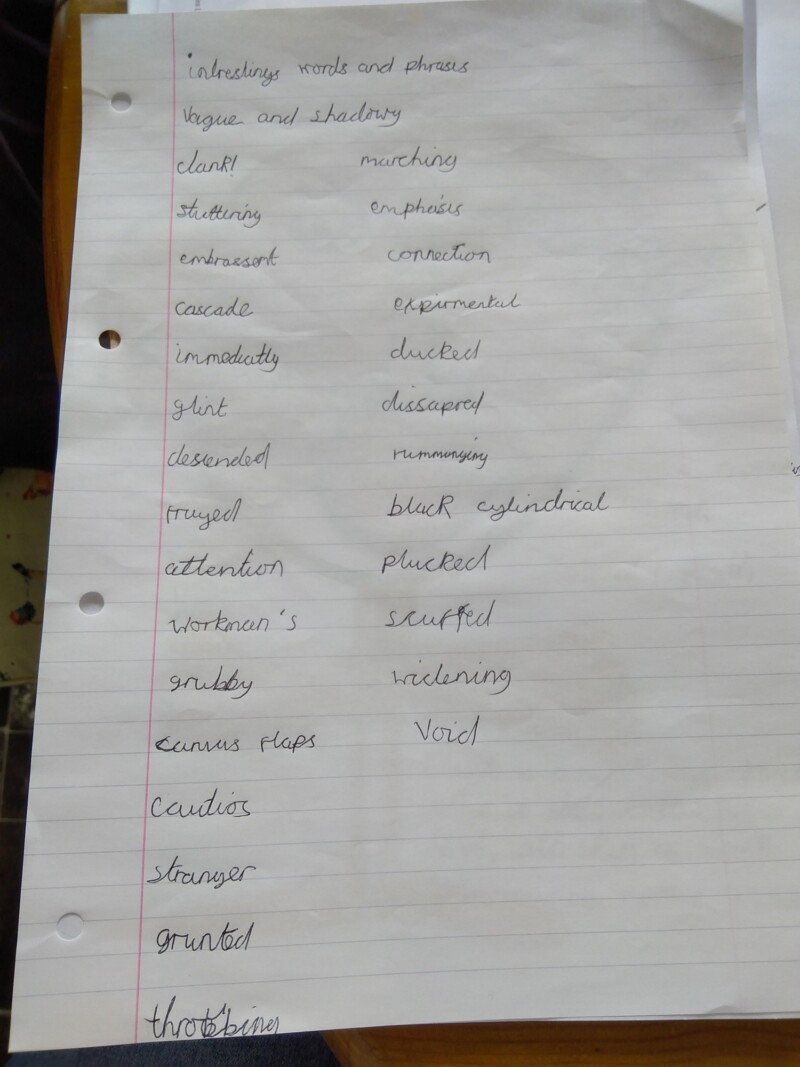 intrestings words and phrases
Vague and shadowy
clank! marching
stuttering emphasis
embrassent connection
cascade expirmental
immediatly ducked
glint dissapred
descended rummanging
frayed black cylindrical
attention plucked
workman's scuffed
grubby widening
canvas flaps Void
cautios
stranger
grunted
throbbing